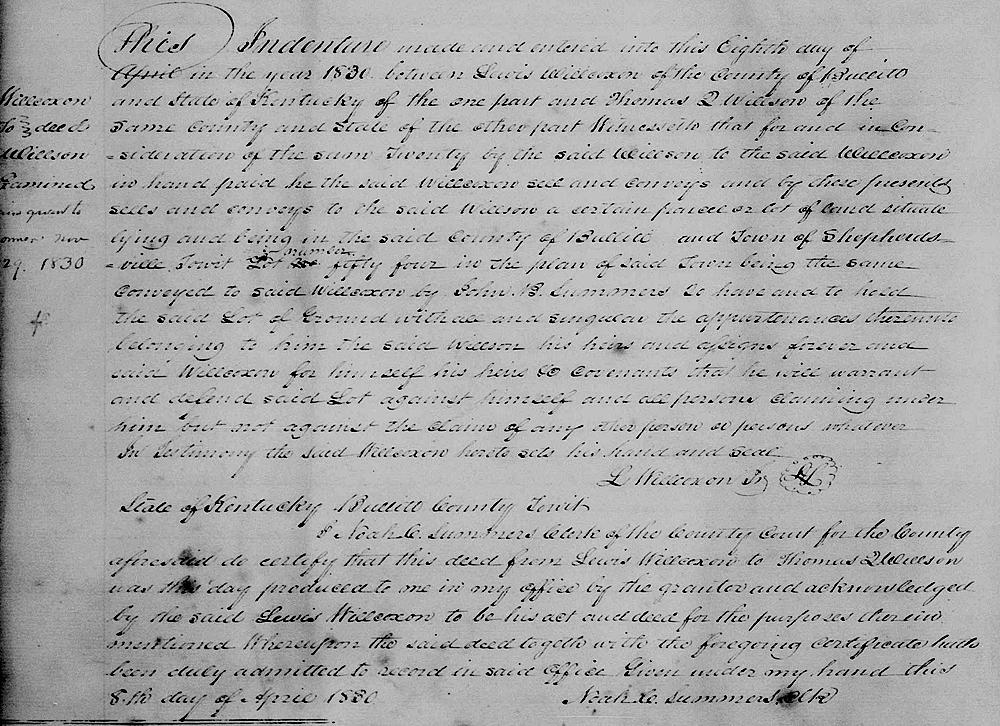 This Indenture made and entered into this Eighth day of
April in the year 1830 between Lewis Willcoxon of the County of Bullitt
and State of Kentucky of the one part and Thomas Q Willson of the
Same County and State of the other part Witnesseth that for and in Con-
=sideration of the sum Twenty by the said Willson to the said Willcoxon
in hand paid he the said Willcoxon sell and Conveys and by these presents
sells and conveys to the said Willson a certain parcel or lot of land situate
lying and being in the said County of Bullitt and Town of Shepherds=
=ville Towit Lot number fifty four in the plan of said Town being the same
Conveyed to said Willcoxon by John B. Summers To have and to hold
the said Lot of Ground with all and singular the appurtenances thereunto
belonging to him the said Willson his heirs and assigns forever and
said Willcoxon for himself his heirs &c Covenants that he will warrant
and defend said Lot against himself and all persons claiming under
him but not against the claim of any other person or persons whatever
In Testimony the said Willcoxon hereto sets his hand and seal
L Willcoxon Jr
Willcoxon
To deed
Willson
Examined
nov
29. 1830
State of Kentucky Bullitt County Towit
I Noah C. Summers Clerk of the County Court for the County
aforesaid do certify that this deed from Lewis Willcoxon to Thomas Q Willson
was this day produced to me in my office by the grantor and acknowledged
by the said Lewis Willcoxon to be his act and deed for the purposes therein
mentioned Whereupon the said deed togeth with the foregoing certificate hath
been duly admitted to record in said office Given under my hand this
8th day of April 1830
Noah C. Summers. Clk